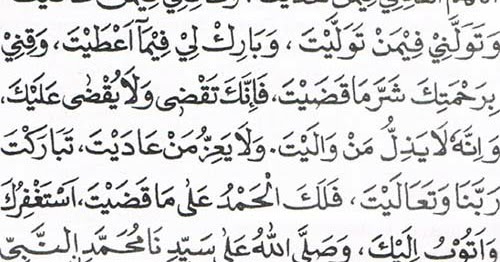 وَتَوَلَّنِي فِيْمَنْ تَوَلَّيْتَ ، وَبَارِكْ لِيْ فِيْمَآ أَعْطَيْتَ، وَقِنِيْ
بِرَحْمَتِكَ شَرَّمَا قَضَيْتَ، فَاِنَّكَ تَقْضِى وَلَا يُقْضٰى عَلَيْكَ،
وَاِنَّهٗ لَا يَذِلُّ مَنْ وَالَيْتَ. وَلَا يَعِزُّ مَنْ عَادَيْتَ، تَبَارَكْتَ
رَبَّنَا وَتَعَالَيْتَ ، فَلَكَ الْحَمْدُ عَلٰى مَا قَضَيْتَ، اَسْتَغْفِرُكَ
وَاَتُوْبُ اِلَيْكَ ، وَصَلَّى اللهُ عَلٰى سَيِّدِ نَا مُحَمَّدٍ اِلنَّبِيِّ